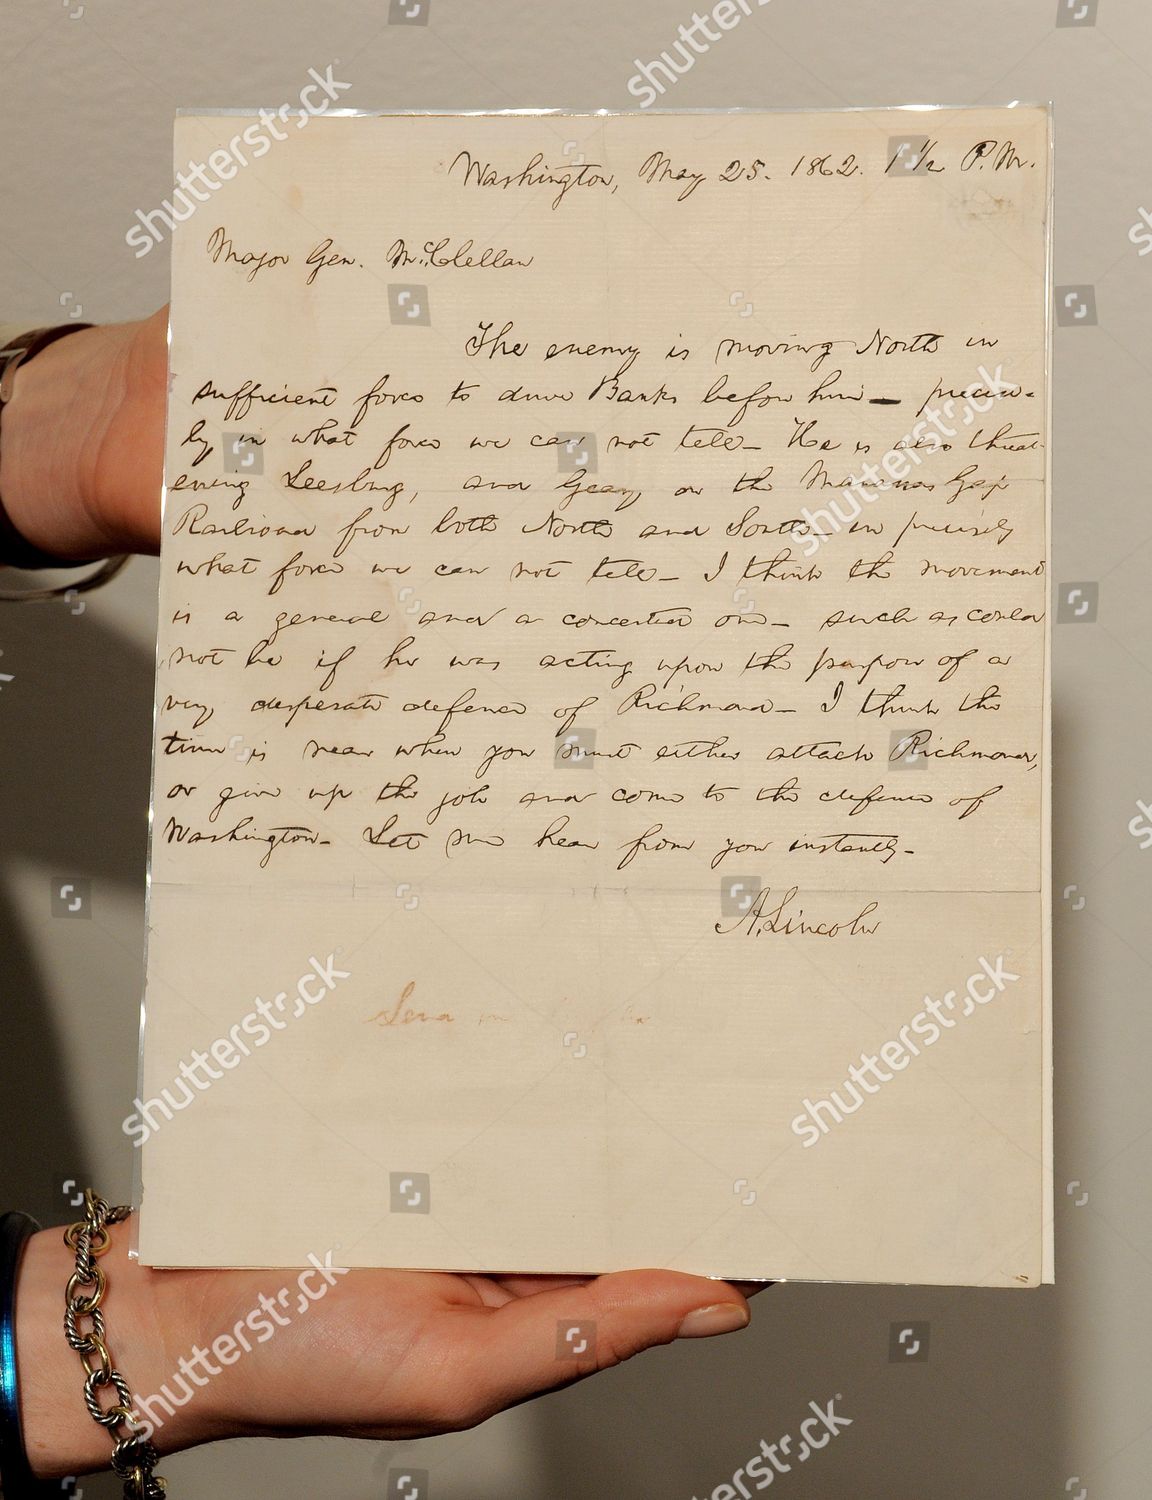 Washington, May 25. 1862. 1 1/2 P.M.
Major Gen. McClellan
The enemy is moving North in
sufficient force to drive Banks before him — precise-
ly in what force we can not tell — He is also threat-
ening Leesburg, and Geary on the Manassas Gap
Railroad from both North and South — in precisely
what force we can not tell — I think the movement
is a general and a concerted one — such as could
not be if he was acting upon the purpose of a
very desperate defence of Richmond — I think the
time is near when you must either attack Richmond,
or give up the job and come to the defence of
Washington — Let me hear from you instantly —
A. Lincoln
shutterstock
shutterstock
shutterstock
shutterstock
shutterstock
shutterstock
shutterstock
shutterstock